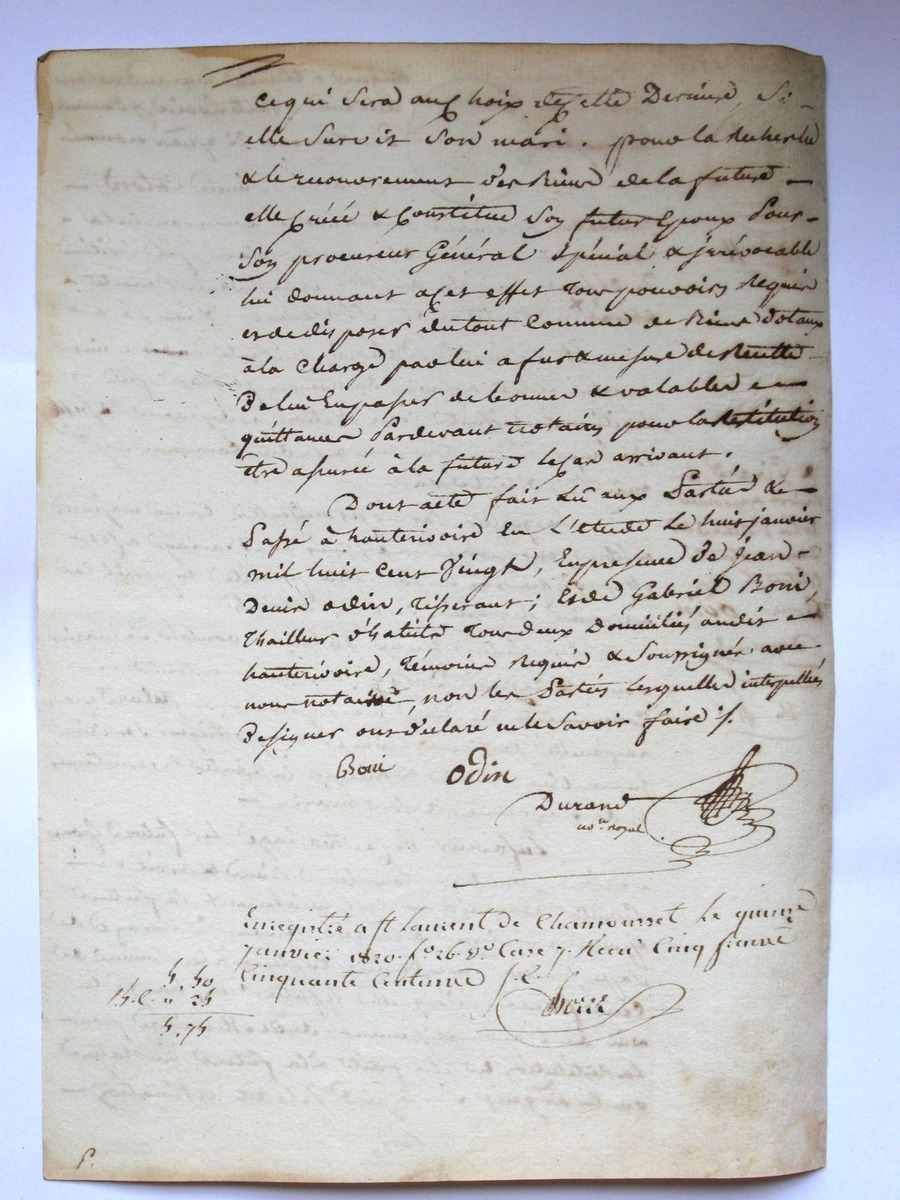 ce qui sera au choix de celle Derniere, si
elle survit son mari. pour la Recherche
& le recouvrement des Biens de la future
elle Créé & Constitue son futur Epoux Pour
son procureur Général spécial & jrrévocable
lui donnant a cet effet Tous pouvoirs Requis
et de disposer du tout Comme de Biens dotaux
à la Charge par lui a fur & mesure de Reccette
De lui En passer de bonnes & valables
quittances Pardevant notaires pour la Restitution
être assurée à la future le cas arrivant.
Dont acte fait Lû aux Parties &
Passé à hauterivoire En L'étude Le huit janvier
mil huit cent Vingt, En presence De jean
Denis odin, Tisserant; Et de Gabriel Boni,
Thailleur d'habits Tous deux Domiciliés audit
hauterivoire, Témoins Requis & Soussignés avec
nous notaire, non les Parties lesquelles interpellées
De signer ont déclaré ne le Savoir faire ./.
Boni odin
Durand
no.re royal
Enregistré a St Laurent de Chamousset Le quinze
janvier 1820. fo. 26. Vo. Case 7. Recu Cinq francs
Cinquante Centimes J.R.
5. 50
" 25
5. 75